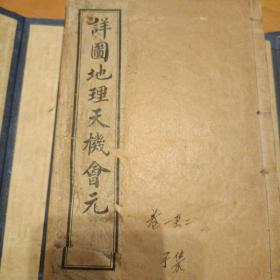 詳圖地理天機會元
卷一至二
子集